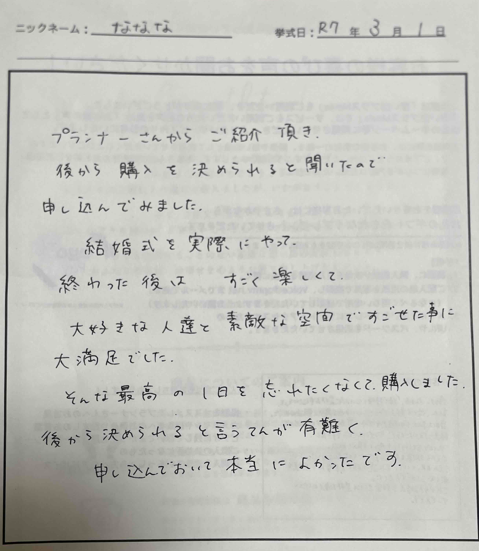 ニックネーム： ななな 挙式日： R7 年 3 月 1 日
プランナーさんから ご紹介 頂き、
後から 購入 を 決められると 聞いたので
申し込んでみました。
結婚式を 実際に やって、
終わった 後は すごく 楽しくて、
大好きな 人達と 素敵な 空間 ですごせた事に
大満足でした。
そんな 最高 の 1日を 忘れたくなくて、購入しました。
後から 決められる と言うてんが 有難く、
申し込んでおいて 本当に よかったです。